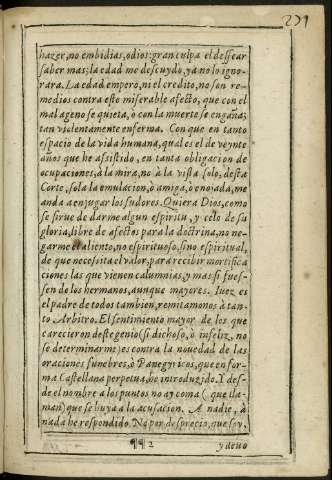 291
hazer, no embidias, odios: gran culpa el dessear
saber mas; la edad me descuydo, ya no lo igno-
rara. La edad empero, ni el credito, no son re-
medios contra este miserable afecto, que con el
mal ageno se quieta, ò con la muerte se engaña;
tan violentamente enferma. Con que en tanto
espacio de la vida humana, qual es el de veynte
años que he assistido, en tanta obligacion de
ocupaciones, à la mira, no à la vista solo, desta
Corte, sola la emulacion, ò amiga, ò enojada, me
anda a enjugar los sudores. Quiera Dios, como
se sirue de darme algun espiritu, y celo de su
gloria, libre de afectos para la doctrina, no ne-
garme el aliento, no espirituoso, sino espiritual,
de que necesita el valor, para recibir mortifica
ciones las que vienen calumnias, y mas si fues-
sen de los hermanos, aunque mayores. Iuez es
el padre de todos tambien, remitamonos à tan-
to Arbitro. El sentimiento mayor de los que
carecieron deste genio (si dichoso, ò infeliz, no
se determinarme) es contra la nouedad de las
oraciones funebres, ò Panegyricos, que en for-
ma Castellana perpetua, he introduzido. Y des-
de el nombre a los puntos no ay coma (que lla-
man) que se huya a la acusacion. A nadie, à
nada he respondido. No por desprecio, que soy,
¶¶ 2 y deuo